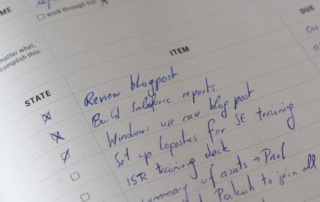 ME
work through list
DUE
matter what,
complish this:
ITEM
STATE
Review blogpost
Build Salesforce reports
Windows use case blog post
Set up for SE training
ISR training deck
summary of assets → Paul
to join all